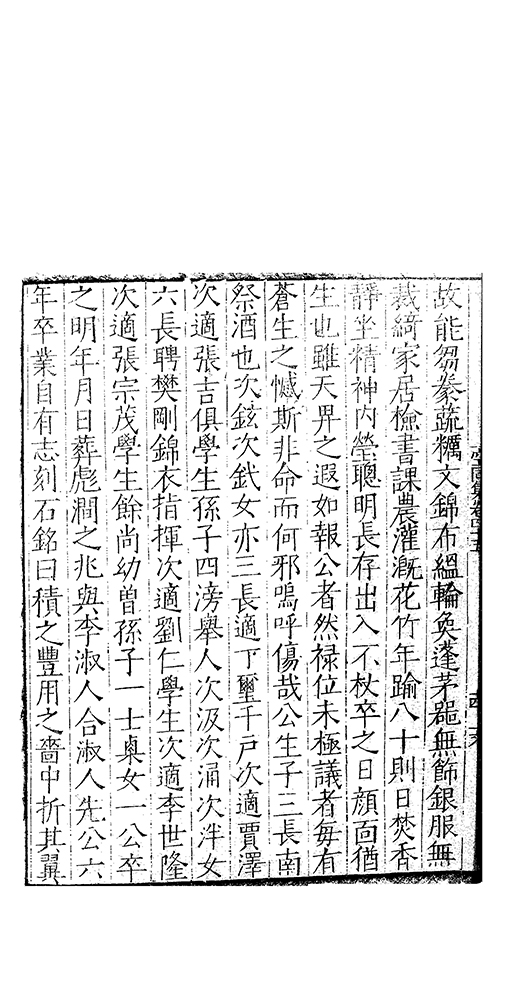 故能芻豢蔬糲文錦布緼輪奐蓬茅噐無飾銀服無
裁綺家居檢書課農灌溉花竹年踰八十則日焚香
靜坐精神内瑩聰明長存出入不杖卒之日顔面猶
生也雖天畀之遐如報公者然禄位未極議者每有
蒼生之憾斯非命而何邪嗚呼傷哉公生子三長南
祭酒也次鉉次釴女亦三長適丁璽千戸次適賈澤
次適張吉俱學生孫子四滂舉人次汲次涌次泮女
六長聘樊剛錦衣指揮次適劉仁學生次適李世隆
次適張宗茂學生餘尚幼曽孫子一士㮚女一公卒
之明年月日葬彪澗之兆與李淑人合淑人先公六
年卒業自有志刻石銘曰積之豐用之嗇中折其翼